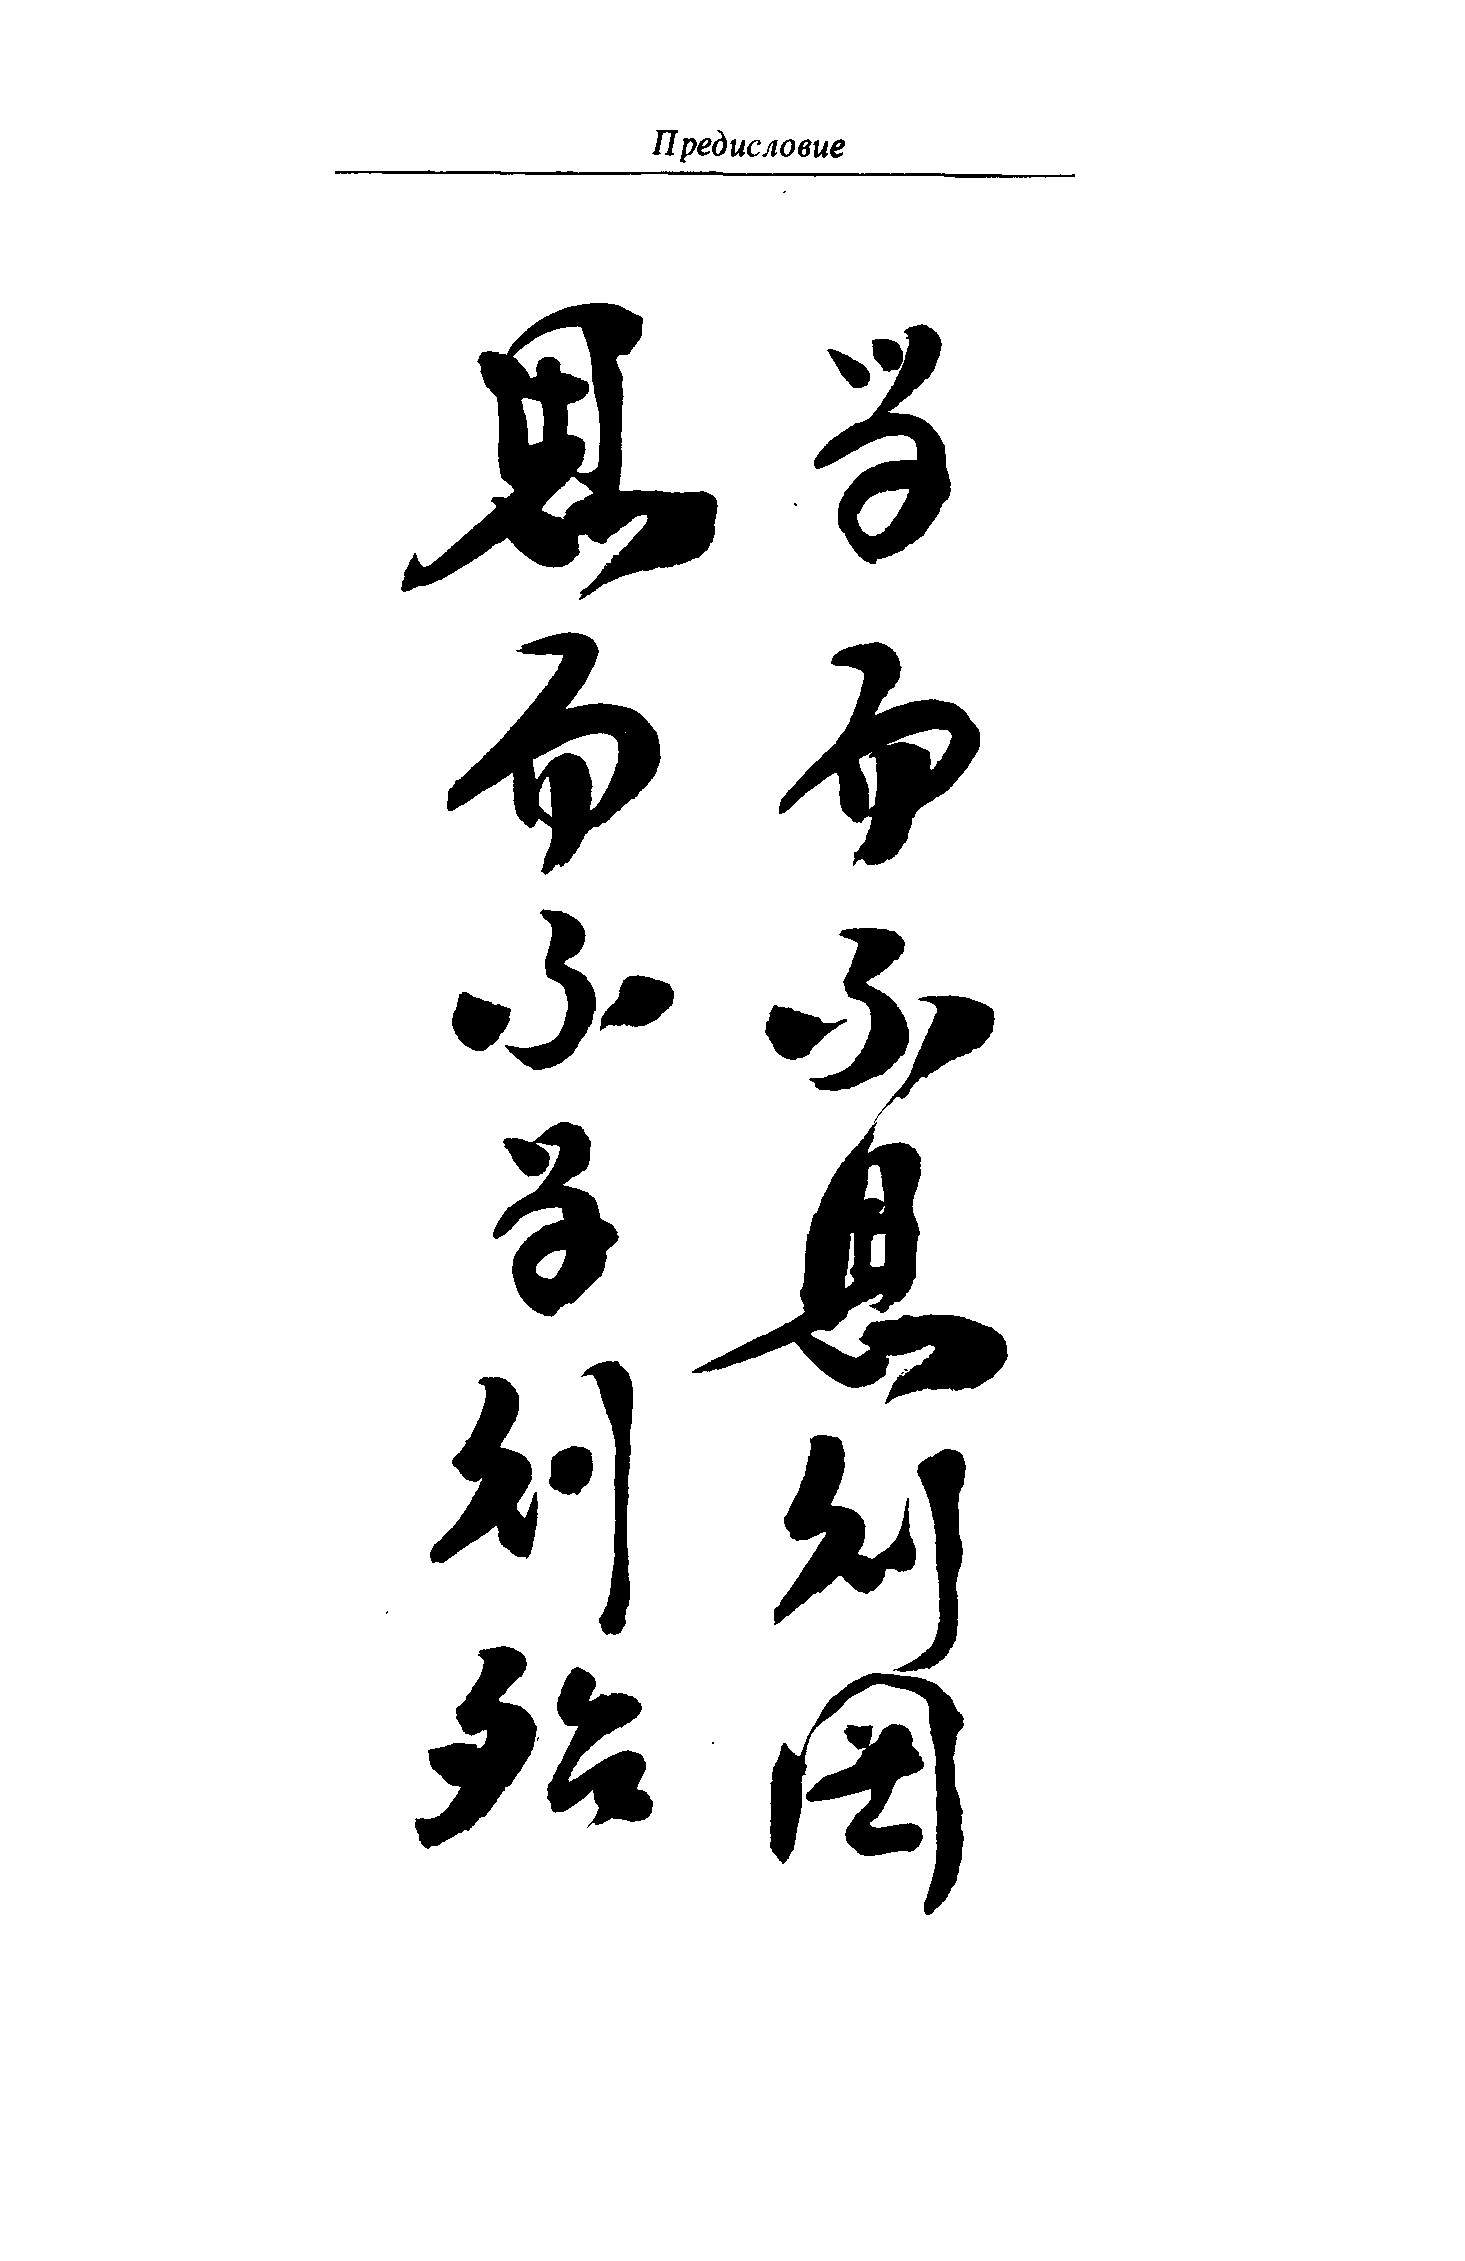 Предисловие
学而不思则罔
思而不学则殆